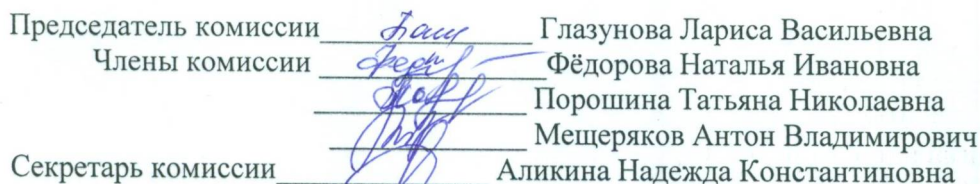 Председатель комиссии________________ Глазунова Лариса Васильевна
Члены комиссии ________________Фёдорова Наталья Ивановна
________________ Порошина Татьяна Николаевна
________________ Мещеряков Антон Владимирович
Секретарь комиссии________________ Аликина Надежда Константиновна